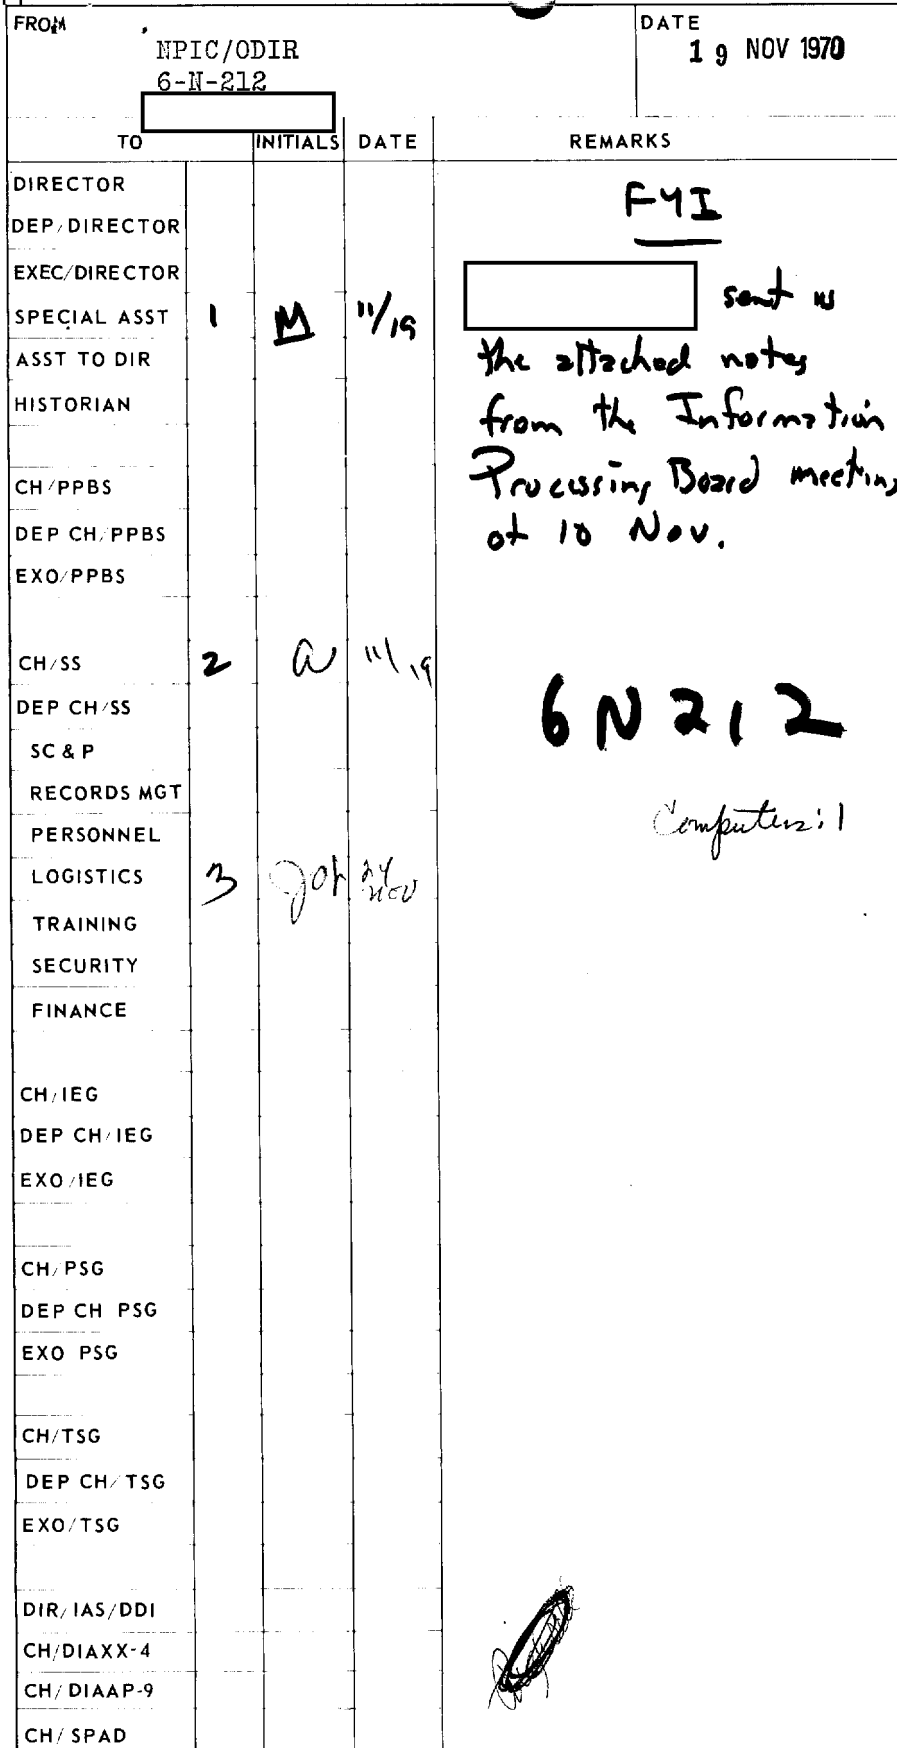 FROM
NPIC/ODIR
6-N-212
DATE
19 NOV 1970
TO INITIALS DATE REMARKS
DIRECTOR
DEP/DIRECTOR
EXEC/DIRECTOR
SPECIAL ASST 1 M 11/19
ASST TO DIR
HISTORIAN
CH/PPBS
DEP CH/PPBS
EXO/PPBS
CH/SS 2 a 11/19
DEP CH/SS
SC & P
RECORDS MGT
PERSONNEL
LOGISTICS 3 24 NOV
TRAINING
SECURITY
FINANCE
CH/IEG
DEP CH/IEG
EXO/IEG
CH/PSG
DEP CH PSG
EXO PSG
CH/TSG
DEP CH/TSG
EXO/TSG
DIR/IAS/DDI
CH/DIAXX-4
CH/DIAAP-9
CH/SPAD
FYI
sent us
the attached notes
from the Information
Processing Board meeting
of 10 Nov.
6N212
Computers: 1